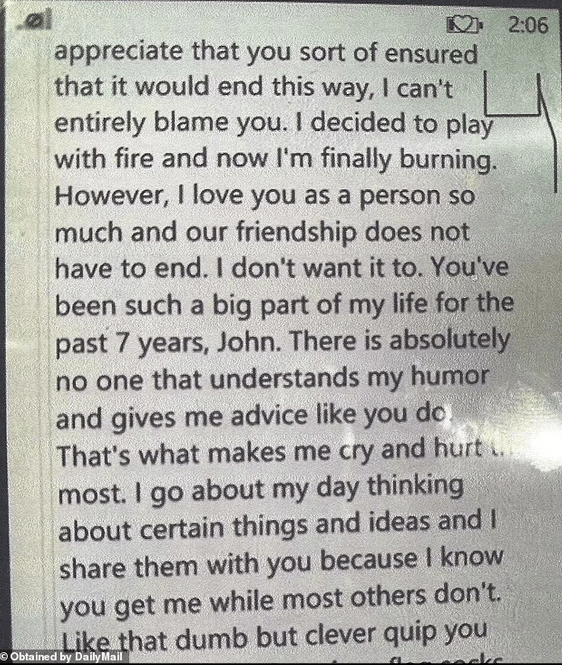 2:06
appreciate that you sort of ensured
that it would end this way, I can't
entirely blame you. I decided to play
with fire and now I'm finally burning.
However, I love you as a person so
much and our friendship does not
have to end. I don't want it to. You've
been such a big part of my life for the
past 7 years, John. There is absolutely
no one that understands my humor
and gives me advice like you do.
That's what makes me cry and hurt
most. I go about my day thinking
about certain things and ideas and I
share them with you because I know
you get me while most others don't.
Like that dumb but clever quip you
© Obtained by DailyMail